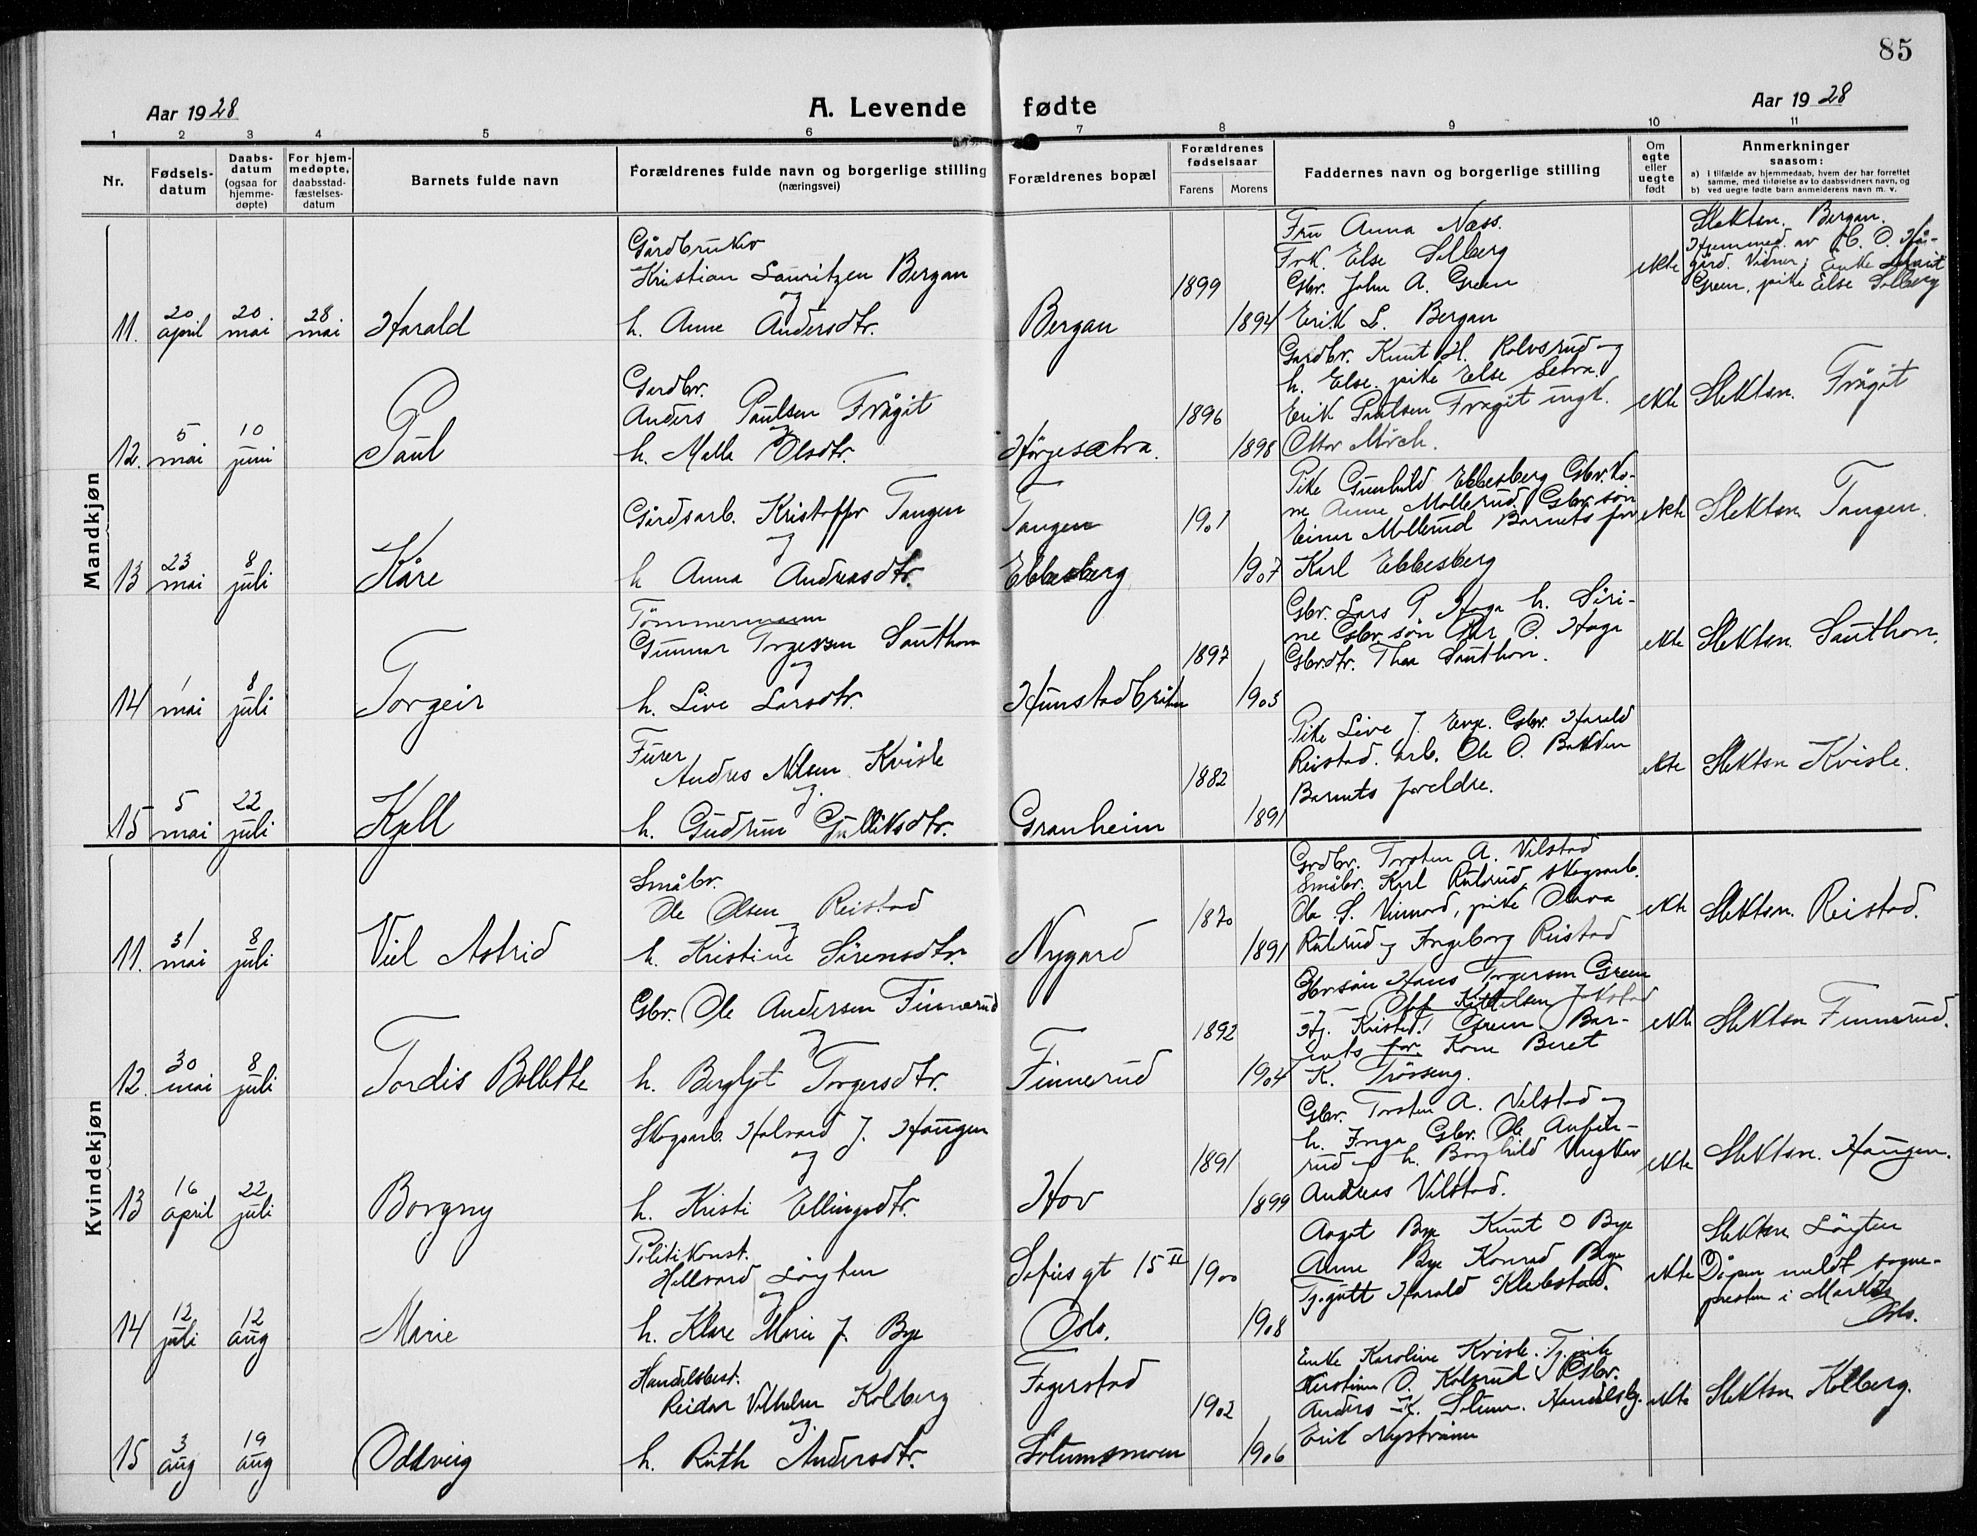 85
Aar 1928
A. Levende fødte
Aar 1928
1 2 3 4 5 6 7 8 9 10 11
Nr.
Fødsels-
datum
Daabs-
datum
(ogsaa for
hjemme-
døpte)
For hjem-
medøpte,
daabsstad-
fæstelses-
datum
Barnets fulde navn
Forældrenes fulde navn og borgerlige stilling
(næringsvei)
Forældrenes bopæl
Forældrenes
fødselsaar
Farens
Morens
Faddernes navn og borgerlige stilling
Om
egte
eller
uegte
født
Anmerkninger
saasom:
a) I tilfælde av hjemmedaab, hvem der har forrettet
samme, med tilføielse av to daabsvidners navn, og
b) ved uegte fødte barn anmelderens navn m. v.
Mandkjøn
11. 20 april
20 mai
28 mai
Harald
Gårdbruker
Kristian Lauritzen Bergan
og
h. Anne Andersdtr.
Bergan
1899
1894
Fru Anna Næss.
Frk. Else Solberg
Gbr. John A. Green
Erik L. Bergan
ekte
Slektsn. Bergan.
Hjemmed. av H. O. Hå-
gård. Vidner: Enke Marit
Green, pike Else Solberg
12. 5 mai
10 juni
Paul
Gardbr.
Anders Paulsen Frøgit
og
h. Malla Olsdtr.
Hørjesætra.
1896
1898
Gardbr. Knut H. Rolvsrud og
h. Else. pike Else Setra.
Erik Paulsen Frøgit ungk.
Ottar Mørch.
ekte
Slektsn. Frøgit
13 23 mai
8 juli
Kåre
Gårdsarb. Kristoffer Tangen
og
h Anna Andreasdtr.
Tangen
Ebbesberg
1901
1907
Pike Gunhild Ebbesberg Gbr.ko-
ne Anne Mollerud. Gbr.søn
Einar Mollerud Barnets far
Karl Ebbesberg
ekte
Slektsn Tangen.
14 1 mai
8 juli
Torgeir
Tømmermann
Gunnar Torgersen Sauthon
og
h. Live Larsdtr.
Hunstadbråten
1897
1903
Gbr. Lars P. Haga h. Siri-
ne Gbr.søn Per O. Haga
Gbrdtr. Thea Sauthon.
ekte
Slektsn. Sauthon.
15 5 mai
22 juli
Kjell
Furer
Andres Nilsen Kvisle
og
h. Gudrun Gulliksdtr.
Granheim
1882
1891
Pike Live J. Enge. Gbr. Harald
Reistad. arb. Ole O. Bakken
Barnets foreldre.
ekte
Slektsn Kvisle.
Kvindekjøn
11. 31 mai
8 juli
Viel Astrid
Småbr.
Ole Olsen Reistad
og
h. Kristine Sørensdtr.
Nygard
1870
1891
Grdbr. Torsten A. Vilstad
Småbr. Karl Rulsrud, skogsarb.
Ola S. Vinnord, pike Olava
Rulsrud og Ingeborg Reistad
ekte
Slektsn. Reistad.
12. 30 mai
8 juli
Tordis Bollette
Gbr. Ole Andersen Finnerud
og
h. Bergljot Torgersdtr.
Finnerud
1892
1904
Gbrsøn Hans Torgersen Green
Kittelsen Jokstad
Green Bar-
nets far Kone Beret
K. Trøseng.
ekte
Slektsn Finnerud.
13 16 april
22 juli
Borgny
Skogsarb. Halvard J. Haugen
og
h. Kristi Ellingsdtr.
Hov
1891
1899
Gbr. Torsten A. Vilstad og
h. Inga Gbr. Ole Aufin-
rud og h. Borghild Ungkar
Andreas Vilstad.
ekte
Slektsn. Haugen.
14 12 juli
12 aug
Marie
Politikonst.
Hallvard Løyten
og
h. Klare Marie J. Bye
Sofies gt 15 II
Oslo.
1900
1908
Aagot Bye Knut O Bye
Anne Bye Konrad Bye
Tj.gutt Harald Klebstad.
ekte
Slektsn Løyten
Dåpen meldt sogne-
presten i Markus
Oslo.
15 3 aug
19 aug
Oddveig
Handelsbest.
Reidar Vilhelm Kolberg
og
h. Ruth Andersdtr.
Fagerstad
Solumsmoen
1902
1906
Enke Karoline Kvisle. Tj.pike
Kirstine O. Kolsrud Gbr.
Anders K. Solum. Handelsbj.
Erik Nystrøm
ekte
Slektsn Kolberg.